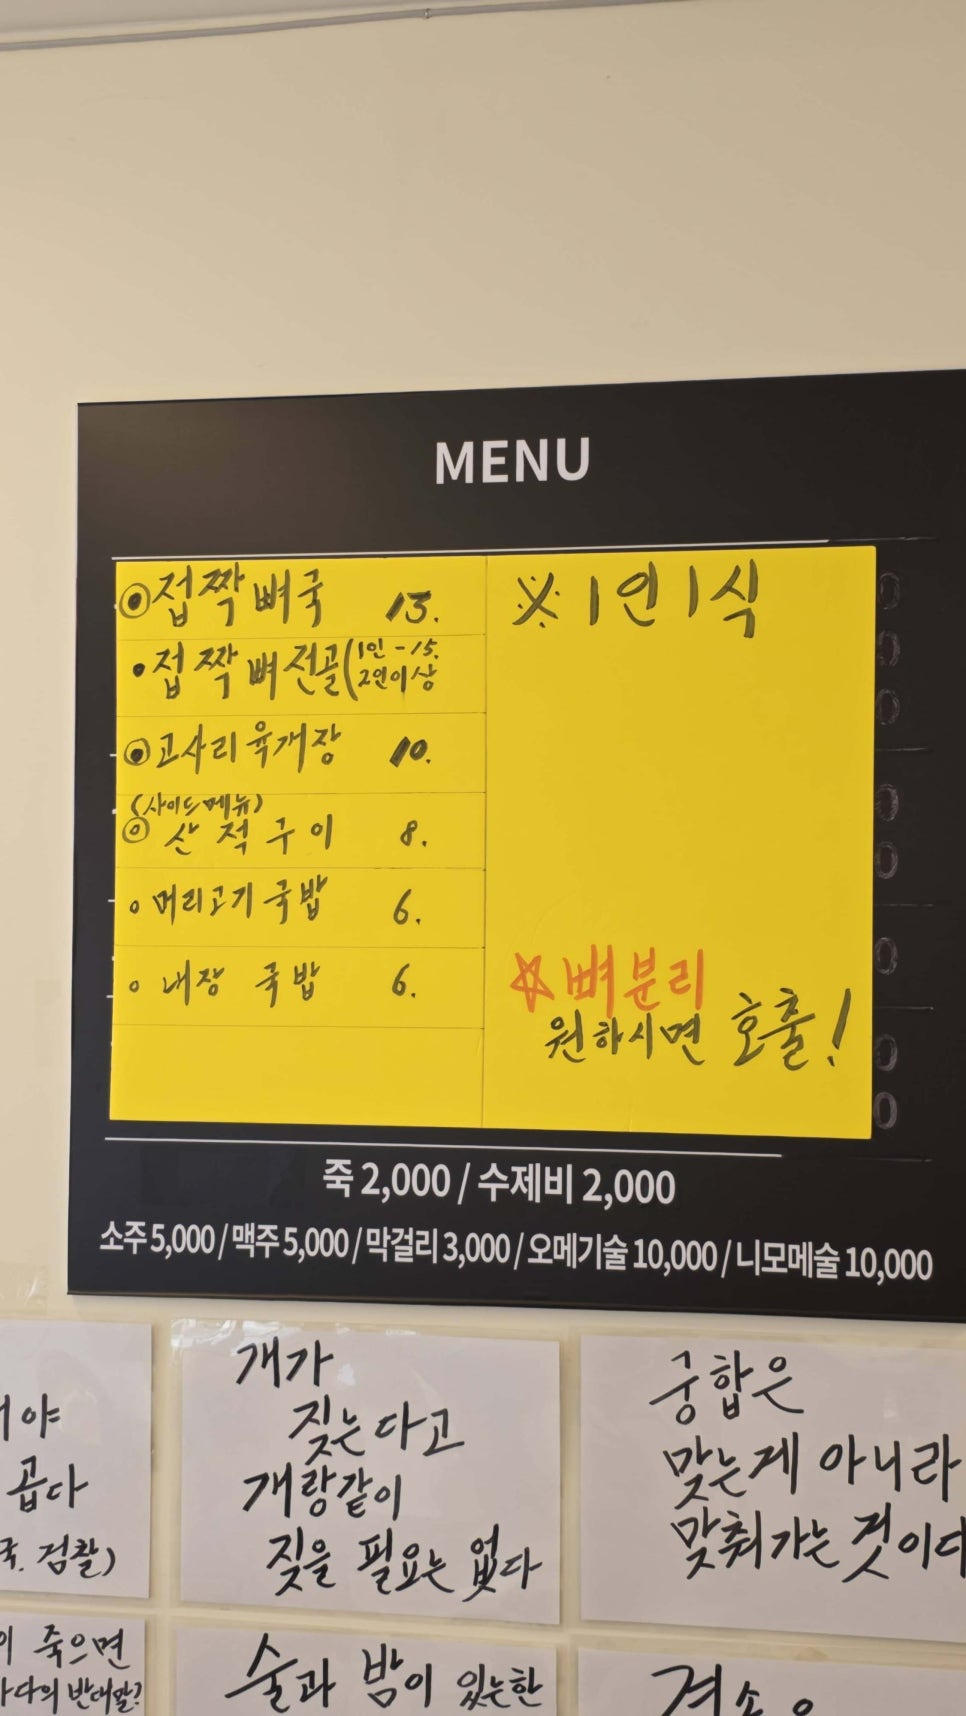 MENU
⊙접짝뼈국 13.
•접짝뼈전골(1인-15.
2인이상
⊙고사리육개장 10.
(사이드메뉴)
◎ 산적구이 8.
○ 머리고기국밥 6.
○ 내장 국밥 6.
※ 1인1식
☆뼈분리
원하시면 호출!
죽 2,000 / 수제비 2,000
소주 5,000 / 맥주 5,000 / 막걸리 3,000 / 오메기술 10,000 / 니모메술 10,000
야
곱다
검찰)
개가
짖는다고
개랑같이
짖을 필요는 없다
궁합은
맞는게 아니라
맞춰가는 것이다
죽으면
반대말?
술과 밤이 있는한